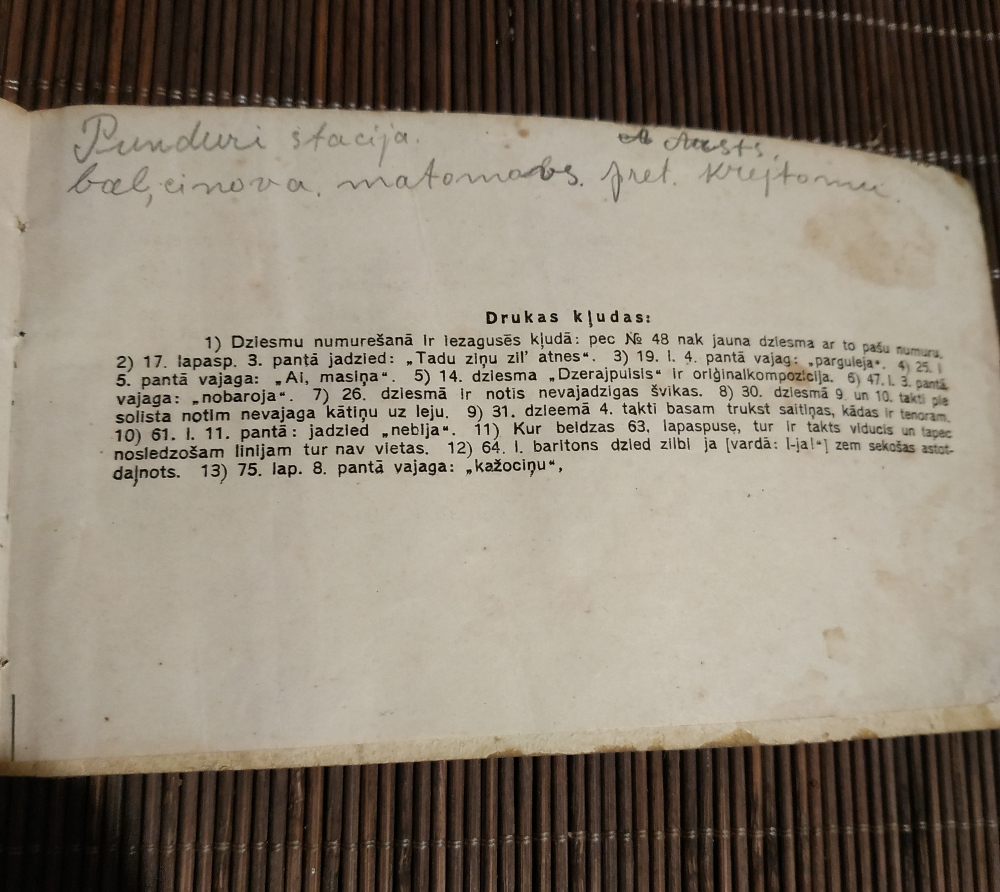 Punduri stacija.
bałcinova. matomabs. pret. krejtomu.
Drukas kļudas:
1) Dziesmu numurešanā ir iezagusēs kļudā: pec № 48 nak jauna dziesma ar to pašu numuru.
2) 17. lapasp. 3. pantā jadzied: „Tadu ziņu zil’ atnes“. 3) 19. l. 4. pantā vajag: „parguleja“. 4) 25. l
5. pantā vajaga: „Ai, masiņa“. 5) 14. dziesma „Dzerajpuisis“ ir oriģinalkompozicija. 6) 47. l. 3. pantā
vajaga: „nobaroja“. 7) 26. dziesmā ir notis nevajadzigas švikas. 8) 30. dziesmā 9 un 10. takti pie
solista notim nevajaga kātiņu uz leju. 9) 31. dzieemā 4. takti basam trukst saitiņas, kādas ir tenoram.
10) 61. l. 11. pantā: jadzied „nebija“. 11) Kur beidzas 63. lapaspuse, tur ir takts viducis un tapec
nosledzošam linijam tur nav vietas. 12) 64. l. baritons dzied zilbi ja [vardā: I-ja!“] zem sekošas astot-
daļnots. 13) 75. lap. 8. pantā vajaga: „kažociņu“,